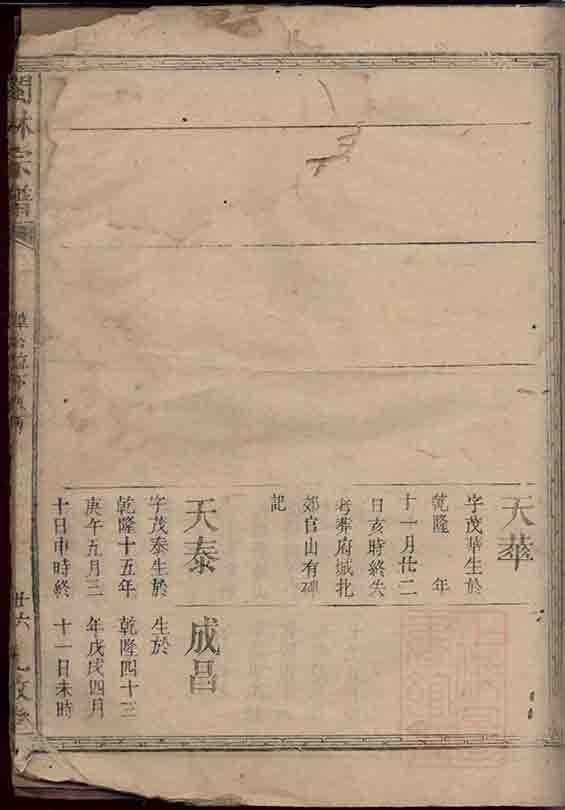 天華
字茂華生於
乾隆 年
十一月廿二
日亥時終失
考葬府城北
郊官山有碑
記
天泰
字茂泰生於
乾隆十五年
庚午五月三
十日申時終
成昌
生於
乾隆四十三
年戊戌四月
十一日未時
林宗譜
廿六